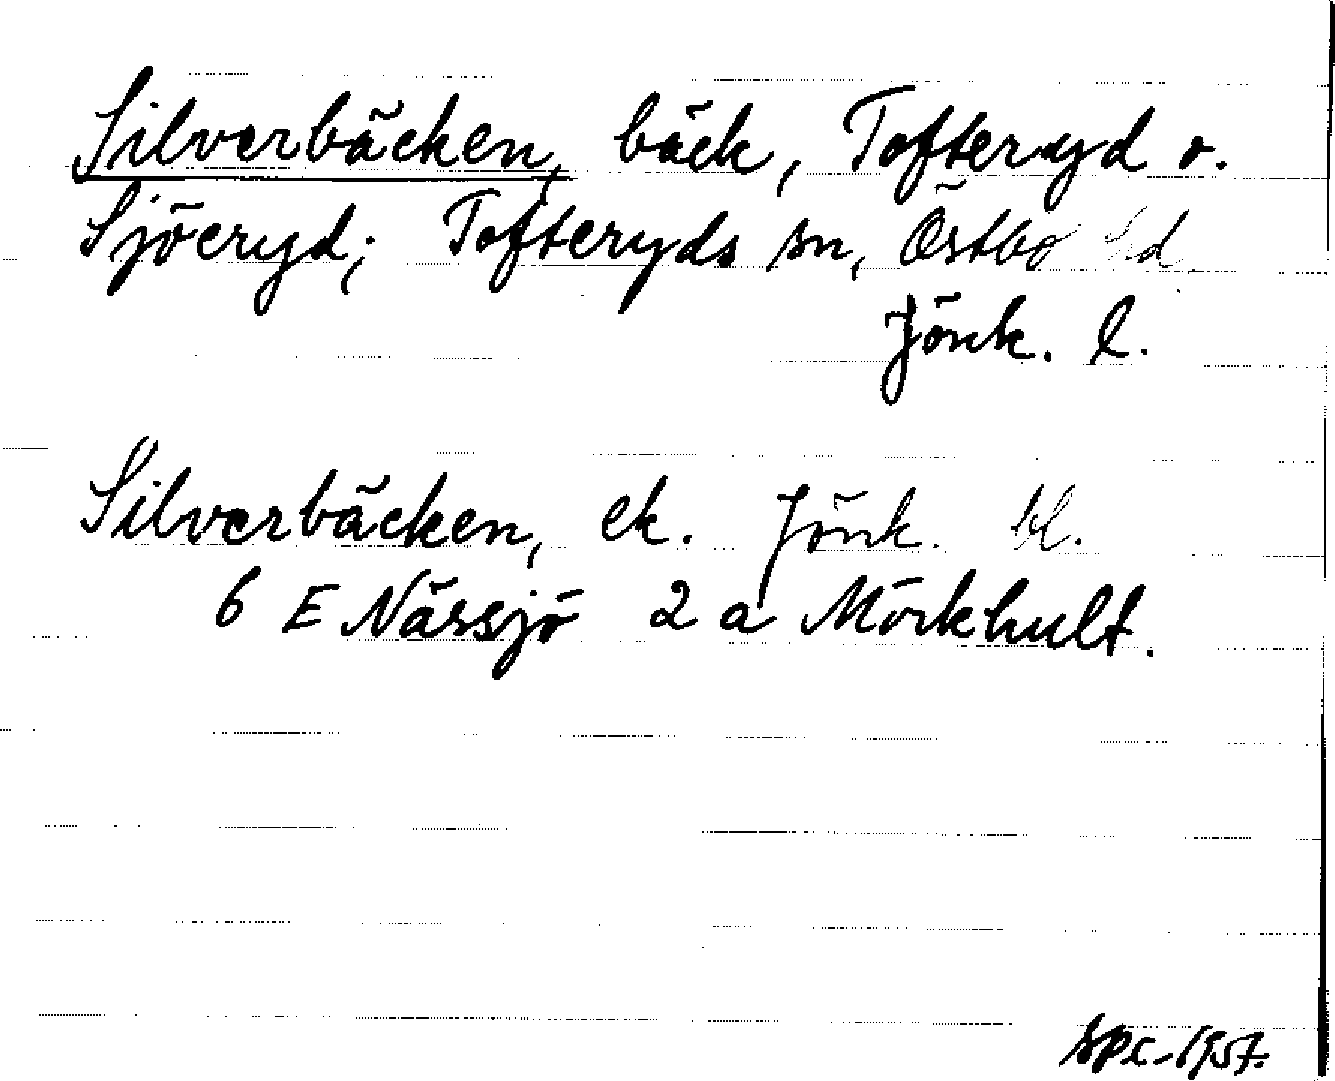 Silverbäcken, bäck, Tofteryd o.
Sjöeryd; Tofteryds sn, Östbo hd
Jönk. l.
Silverbäcken, ek. Jönk. bl.
6 E Nässjö 2 a Mörkhult.
1957.